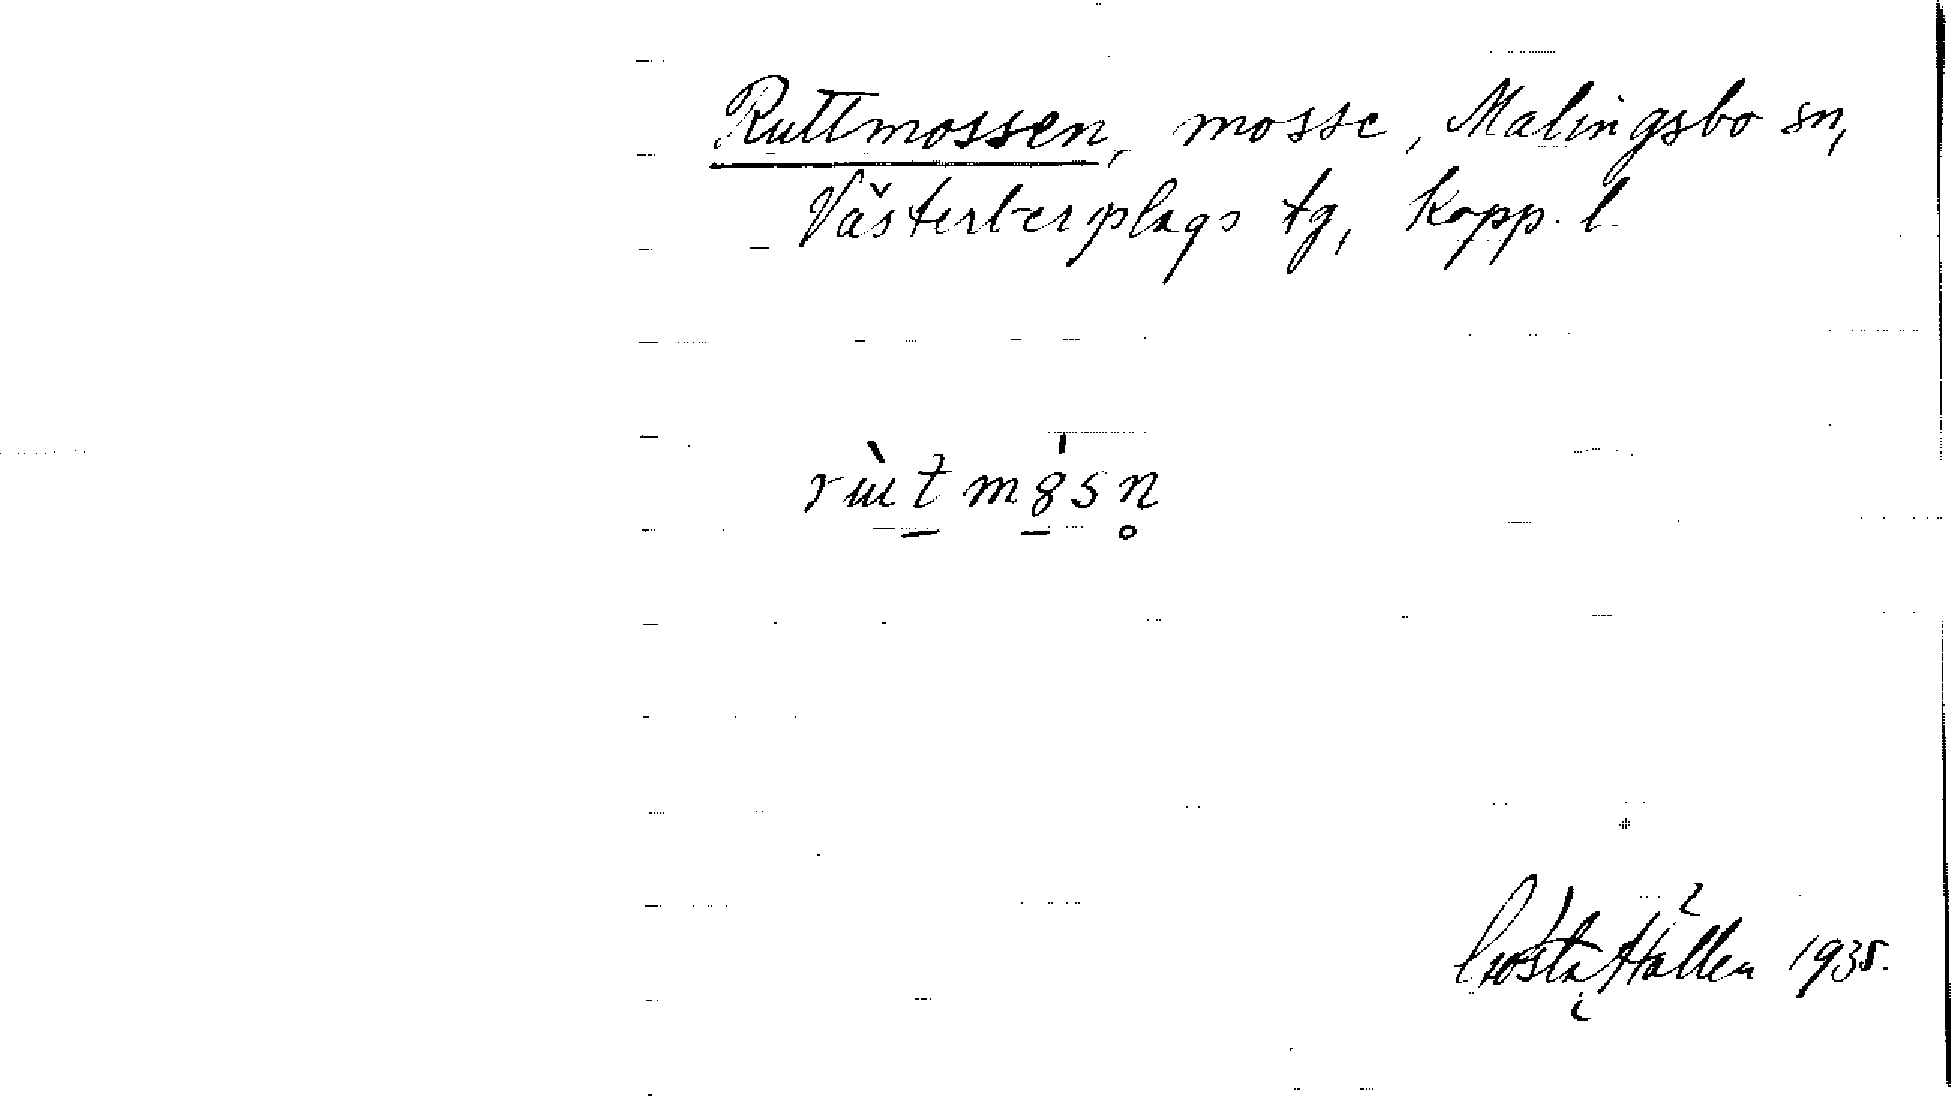 Ruttmossen, mosse, Malingsbo sn,
Västerbergslags tg, Kopp. l.
rɯ̀t mȣ́sn̥
Gösta Hållen 1935.